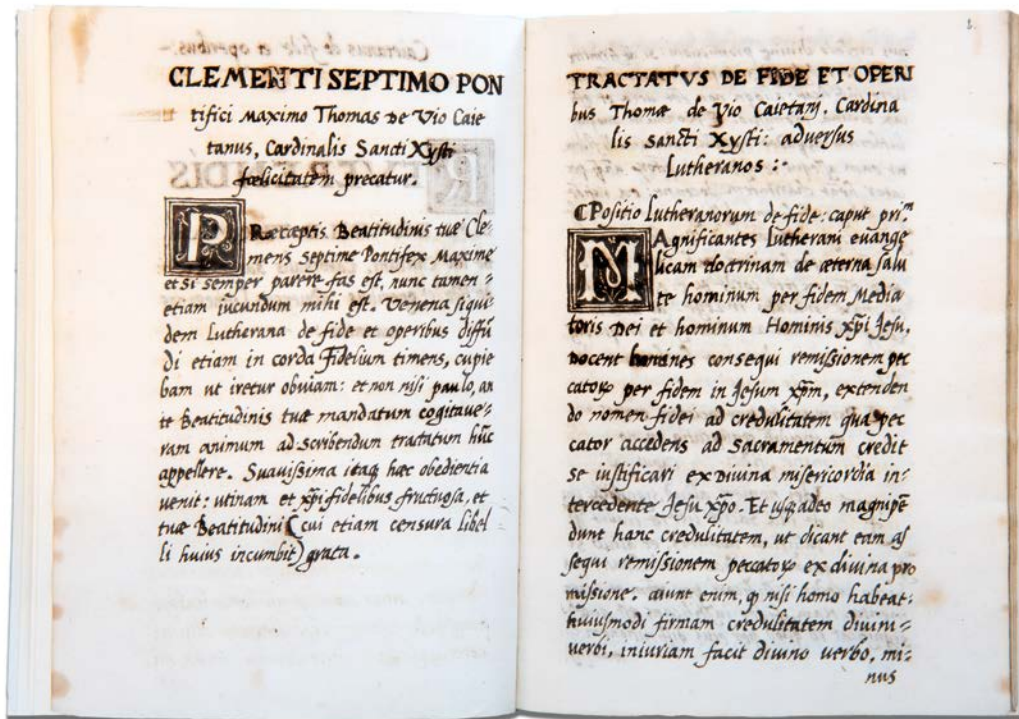 CLEMENTI SEPTIMO PON
tifici Maximo Thomas De Vio Caie
tanus, Cardinalis Sancti Xysti
fœlicitatem precatur.
PRæceptis Beatitudinis tuæ Cle-
mens Septime Pontifex Maxime
et si semper parere fas est, nunc tamen
etiam iucundum mihi est. Venena siqui
dem Lutherana de fide et operibus diffū
di etiam in corda Fidelium timens, cupie
bam ut iretur obviam: et non nisi paulo, an
te Beatitudinis tuæ mandatum cogitave-
ram animum ad scribendum tractatum hūc
appellere. Suavissima itaq hæc obedientia
venit: utinam et xp̄i fidelibus fructuosa, et
tuæ Beatitudini (cui etiam censura libel
li huius incumbit) grata.
TRACTATVS DE FIDE ET OPERI
bus Thomæ de Vio Caietanj. Cardina
lis sancti Xysti: adversus
Lutheranos :
Positio Lutheranorum de fide: caput pri.m
MAgnificantes Lutherani evange
licam doctrinam de æterna salu
te hominum per fidem Media
toris Dei et hominum Hominis xp̄i Jesu.
Docent homines consequi remissionem pec
catoꝝ per fidem in Jesum xp̄m, extenden
do nomen fidei ad credulitatem qua pec
cator accedens ad Sacramentum credit
se iustificari ex Divina misericordia in-
tercedente Jesu xp̄o. Et usq adeo magnipē
dunt hanc credulitatem, ut dicant eam as
sequi remissionem peccatoꝝ ex divina pro
missione. aiunt enim, ꝙ nisi homo habeat
huiusmodi firmam credulitatem divini
verbi, iniuriam facit divino verbo, mi-
nus